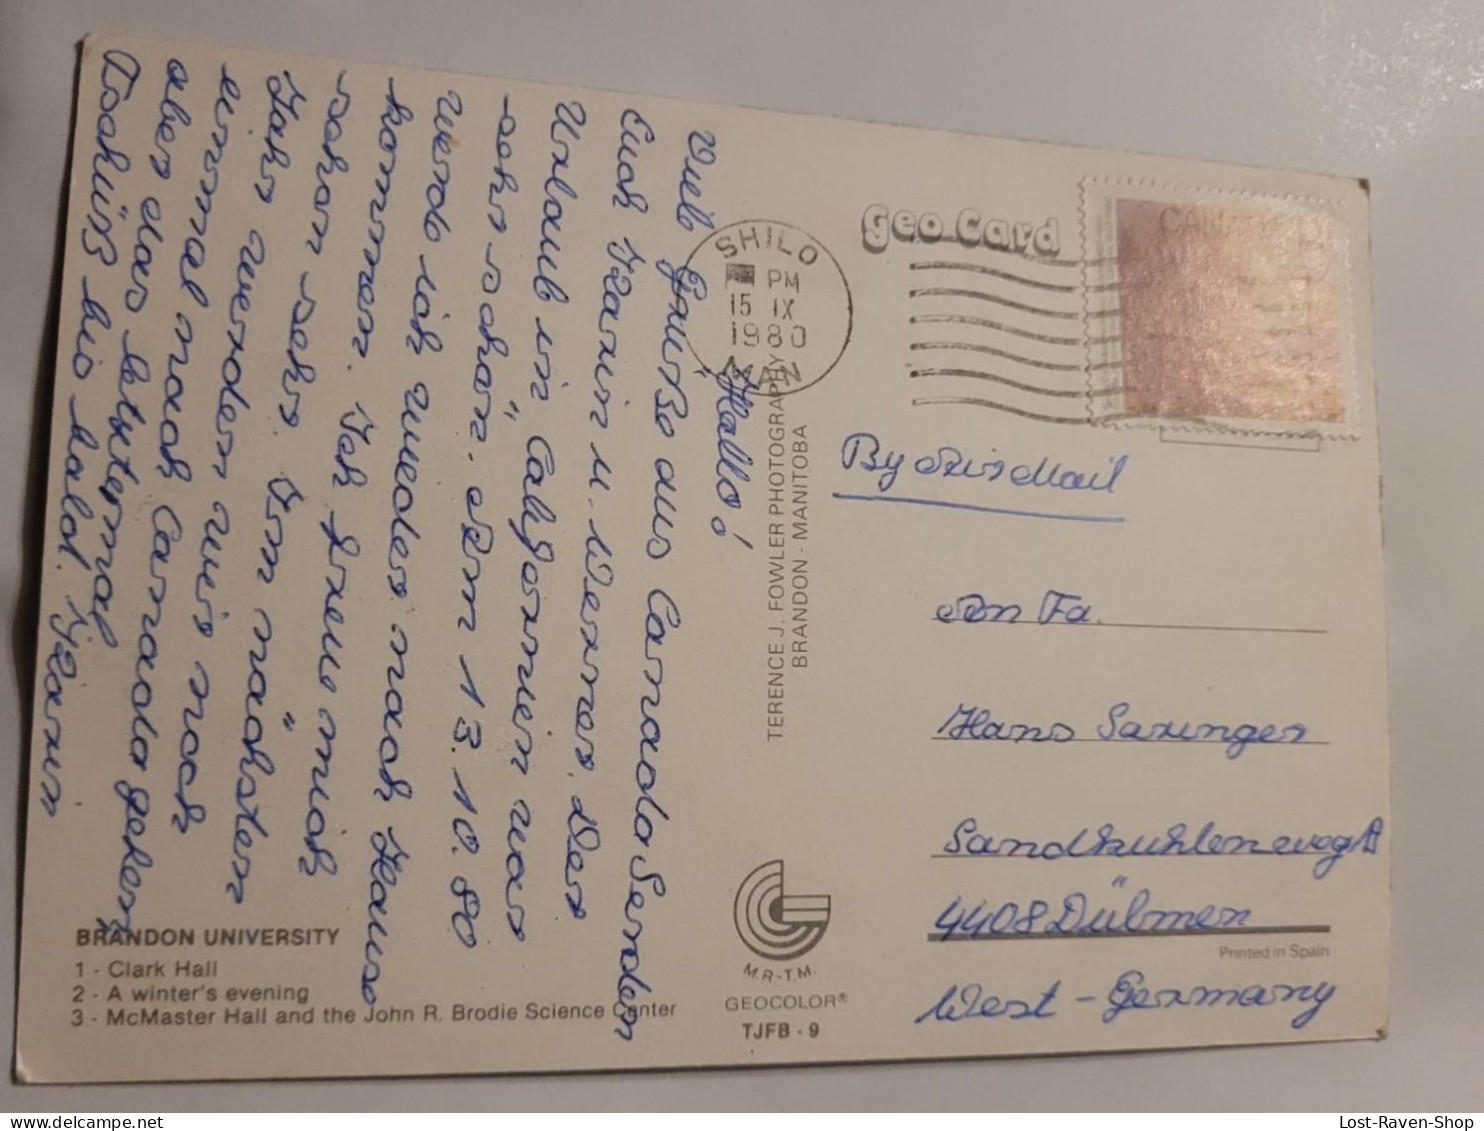 Hallo!
Viele Grüße aus Canada senden
Euch Karin u. Werner. Der
Urlaub in Californien war
sehr schön. Am 13.10.80
werd ich wieder nach Hause
kommen. Ich freue mich
schon sehr. Im nächsten
Jahr werden wir noch
einmal nach Canada gehen
aber das letztemal
Tschüß bis bald. Karin
Geo Card
CAN
SHILO
PM
15 IX
1980
MAN
TERENCE J. FOWLER PHOTOGRAPHY
BRANDON - MANITOBA
By Air Mail
An Fa.
Hans Saringer
4408 Dülmen
West-Germany
Printed in Spain
BRANDON UNIVERSITY
1 - Clark Hall
2 - A winter's evening
3 - McMaster Hall and the John R. Brodie Science Center
M.R.-T.M.
GEOCOLOR®
TJFB - 9
Lost-Raven-Shop